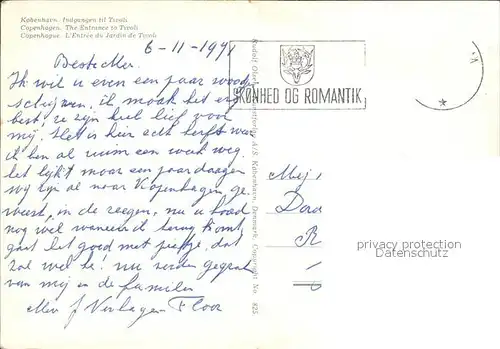 København. Indgangen til Tivoli
Copenhagen. The Entrance to Tivoli
Copenhague. L'Entrée du Jardin de Tivoli
6-11-1971
Beste Mev.
Ik wil u even een paar woorden
schrijven, ik maak het erg
best, ze zijn heel lief voor
mij. Het is hier echt herfst weer
ik ben al ruim een week weg.
het lijkt maar een paar dagen
wij zijn al naar Kopenhagen ge
weest, in de regen, nu u hoord
nog wel wanneer ik terug komt
gaat het goed met pietje, dat
zal wel he! nu verder gegroet
van mij en de familie
Mev J Verhagen Floor
SKØNHED OG ROMANTIK
Mej
privacy protection
Datenschutz
Rudolf Olsens Kunstforlag A/S. København, Denmark. Copyright No. 825